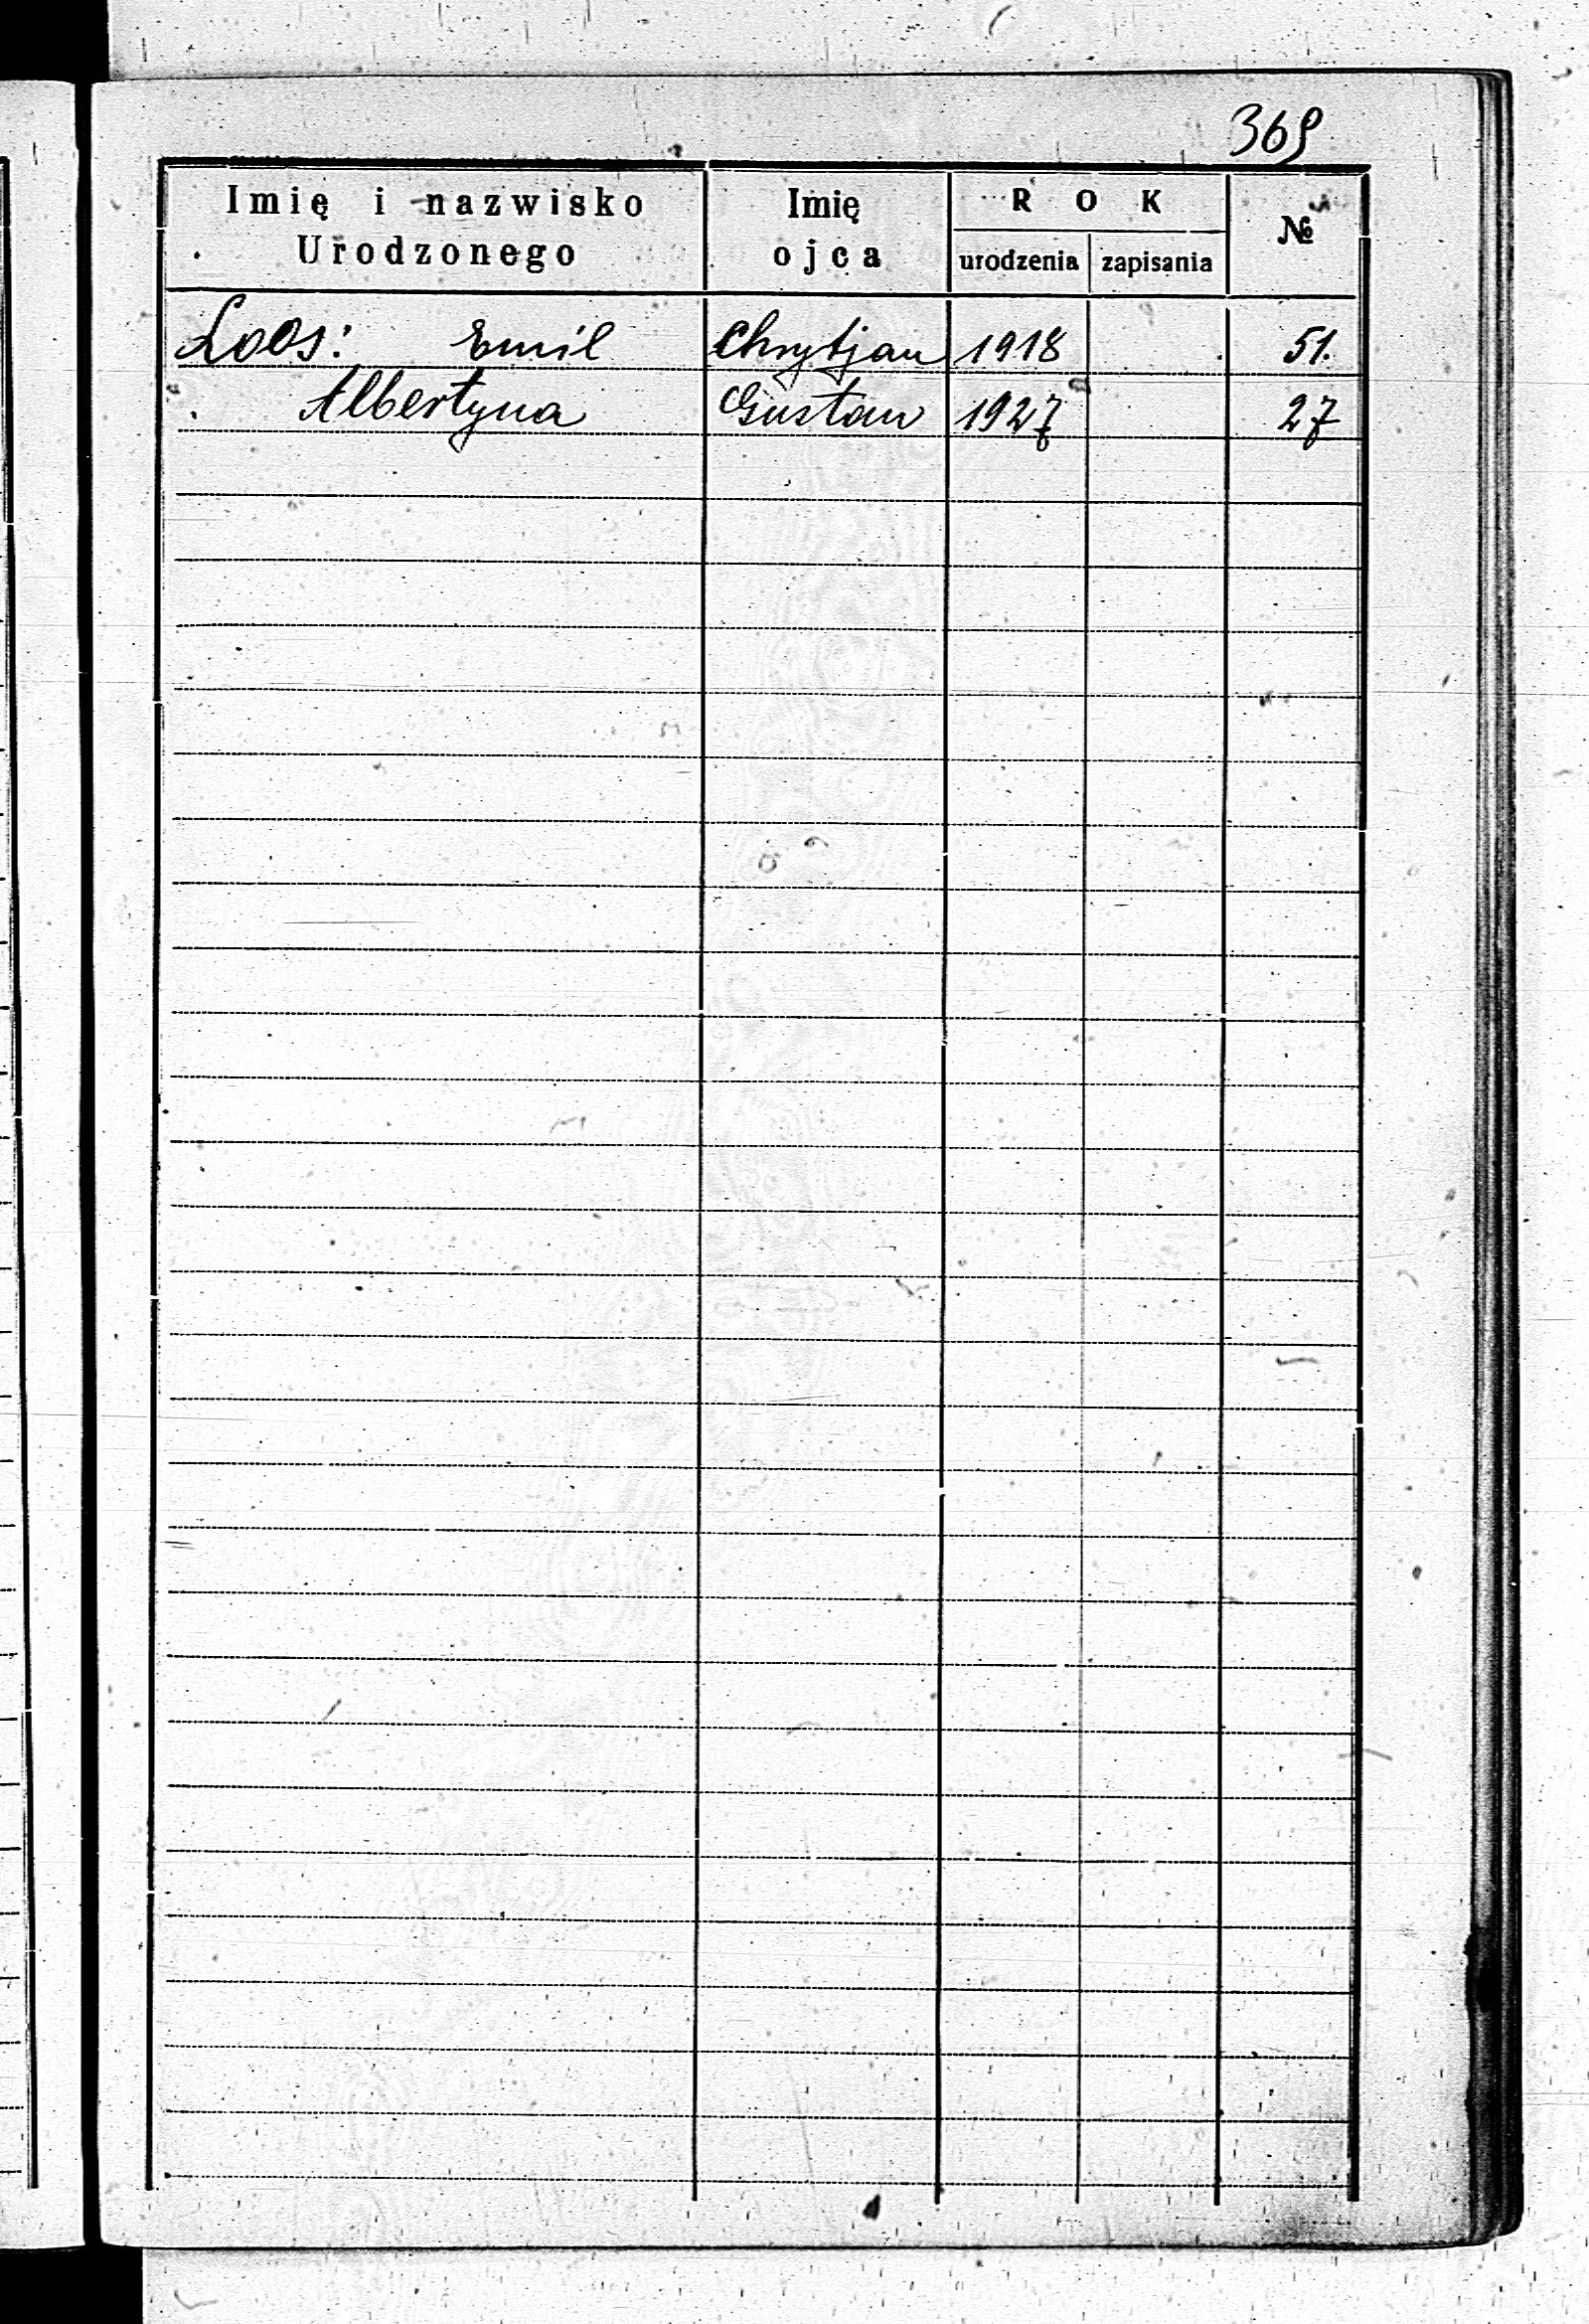 369
Imię i nazwisko Urodzonego Imię ojca ROK urodzenia zapisania №
Loos: Emil Chrystjan 1918 51.
Albertyna Gustaw 1927 27